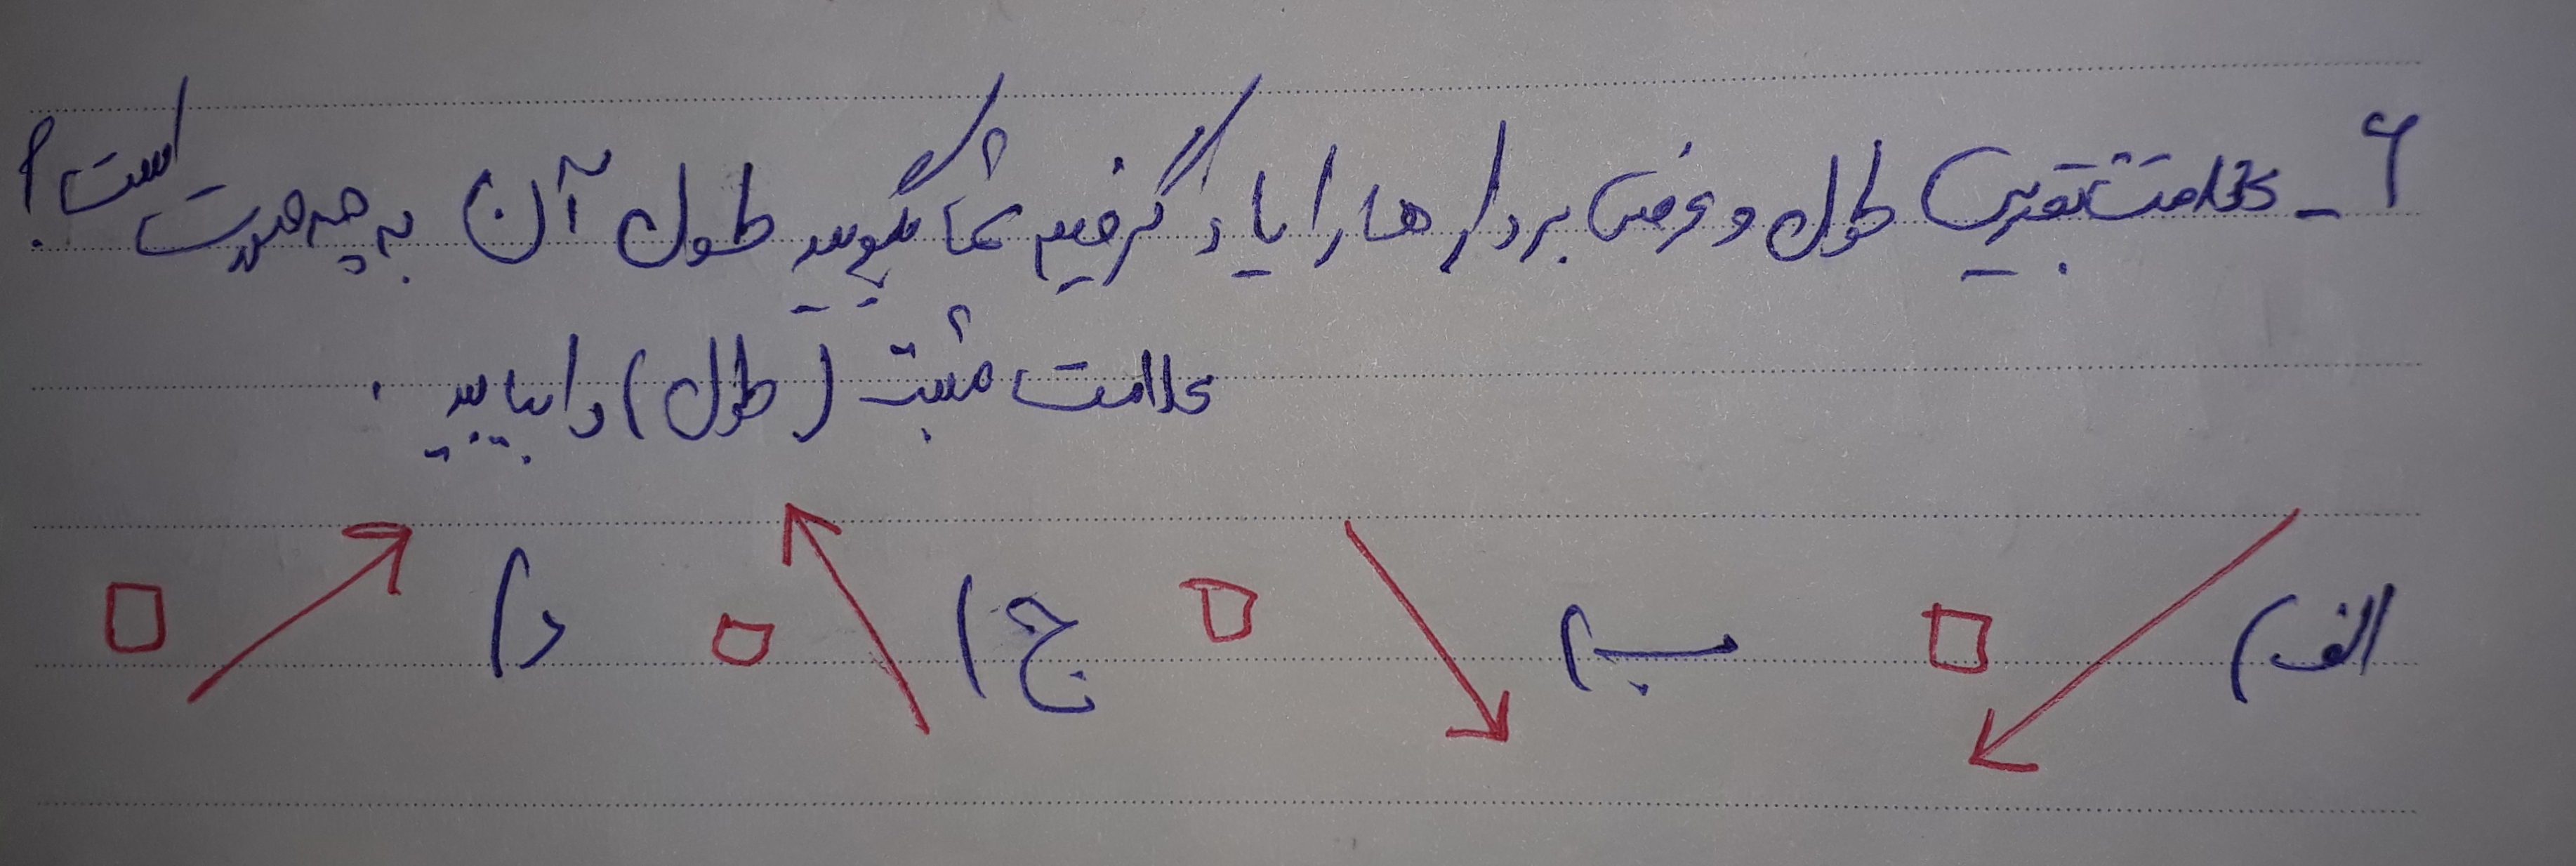 ۶ - علامت تقریبی طول و عرض بردار ها را یاد گرفتیم شما بگویید طول آن به چه صورت است؟
علامت مثبت (طول) را بیابید .
الف) ب) ج) د)